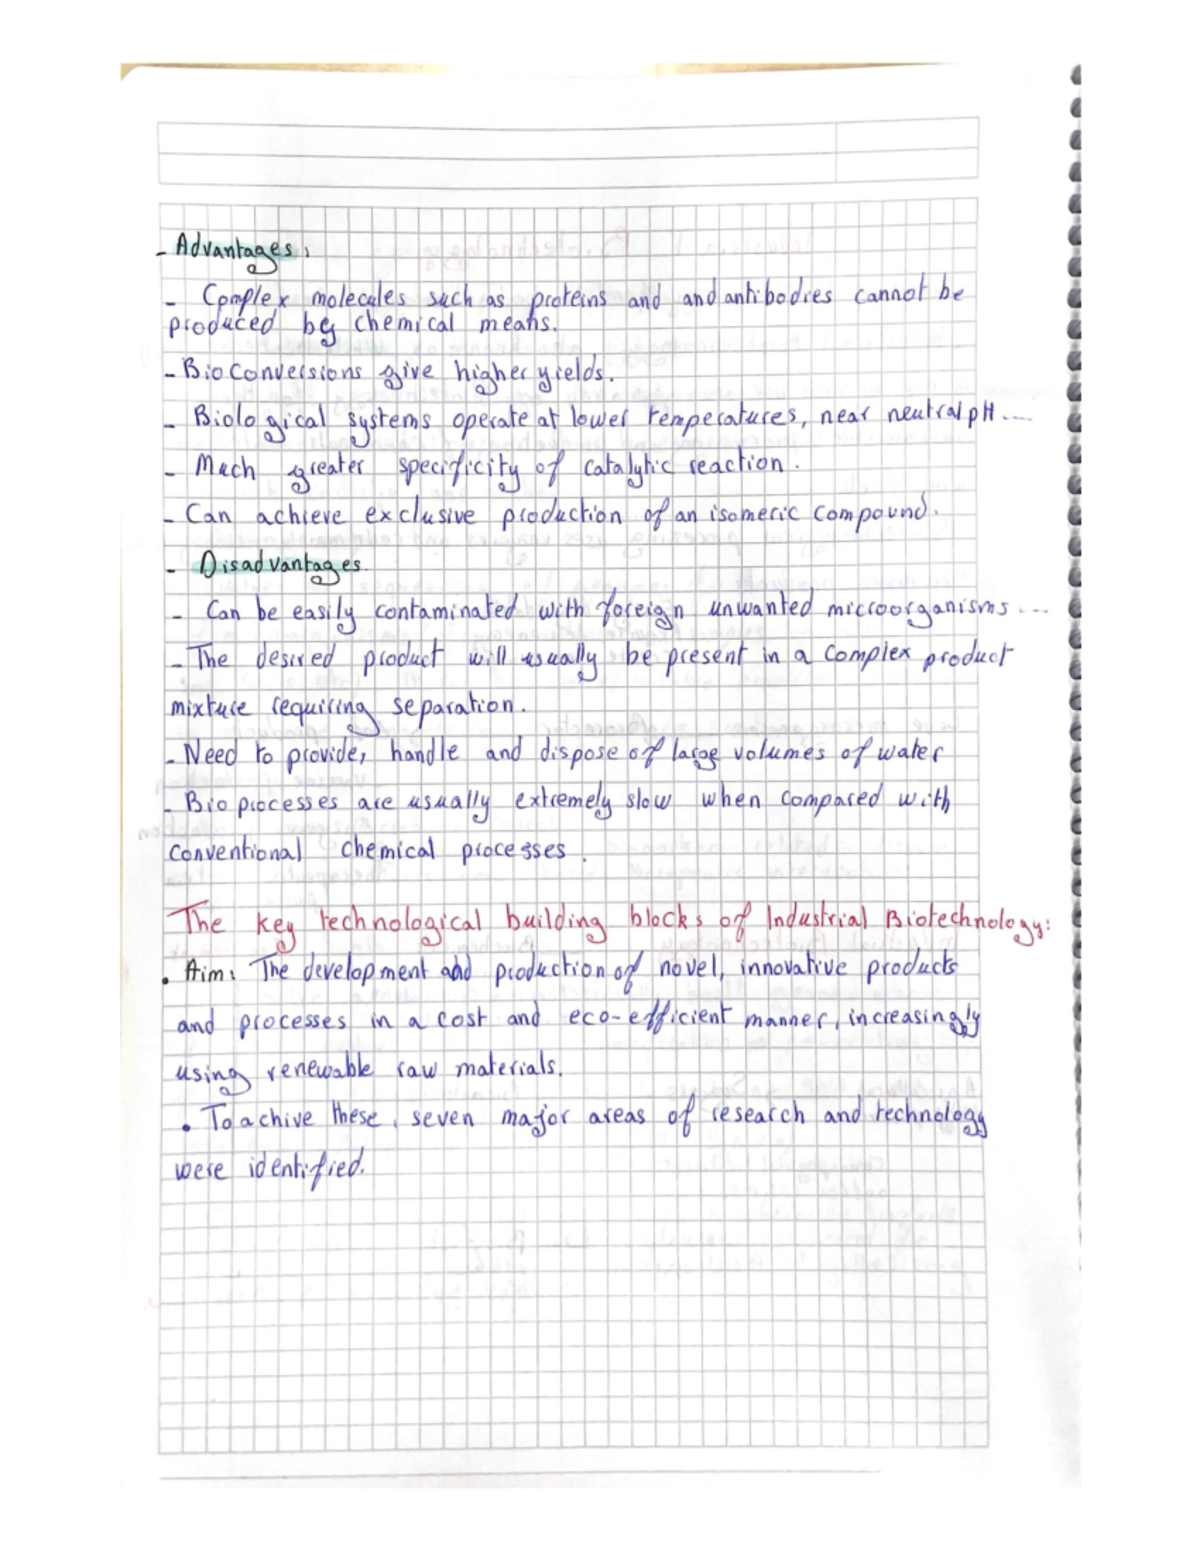 - Advantages:
- Complex molecules such as proteins and and antibodies cannot be
produced by chemical means.
- Bio conversions give higher yields.
- Biological systems operate at lower temperatures, near neutral pH....
- Much greater specificity of catalytic reaction.
- Can achieve exclusive production of an isomeric compound.
- Disadvantages.
- Can be easily contaminated with foreign unwanted microorganisms...
- The desired product will usually be present in a complex product
mixture requiring separation.
- Need to provide, handle and dispose of large volumes of water
- Bio processes are usually extremely slow when compared with
conventional chemical processes.
The key technological building blocks of Industrial Biotechnology:
• Aim: The development and production of novel, innovative products
and processes in a cost and eco-efficient manner, increasingly
using renewable raw materials.
• To achive these, seven major areas of research and technology
were identified.